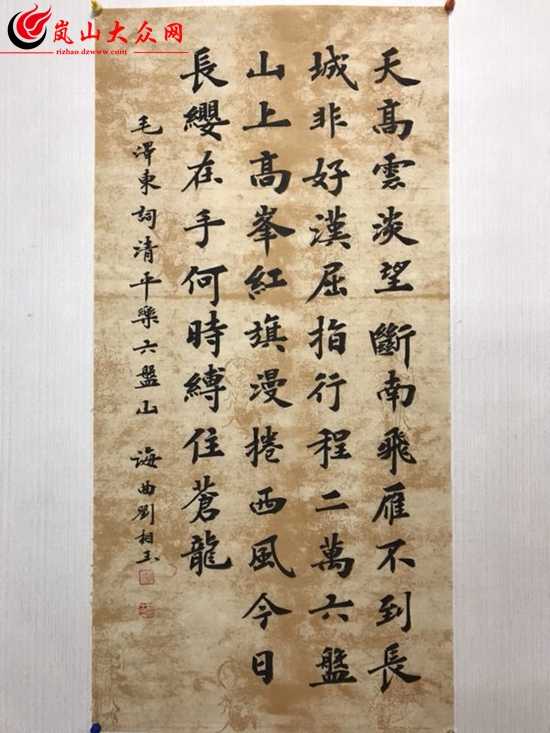 岚山大众网
rizhao.dzwww.com
天高雲淡望斷南飛雁不到長
城非好漢屈指行程二萬六盤
山上高峯紅旗漫捲西風今日
長纓在手何時縛住蒼龍
毛澤東詞清平樂六盤山 海曲劉相玉